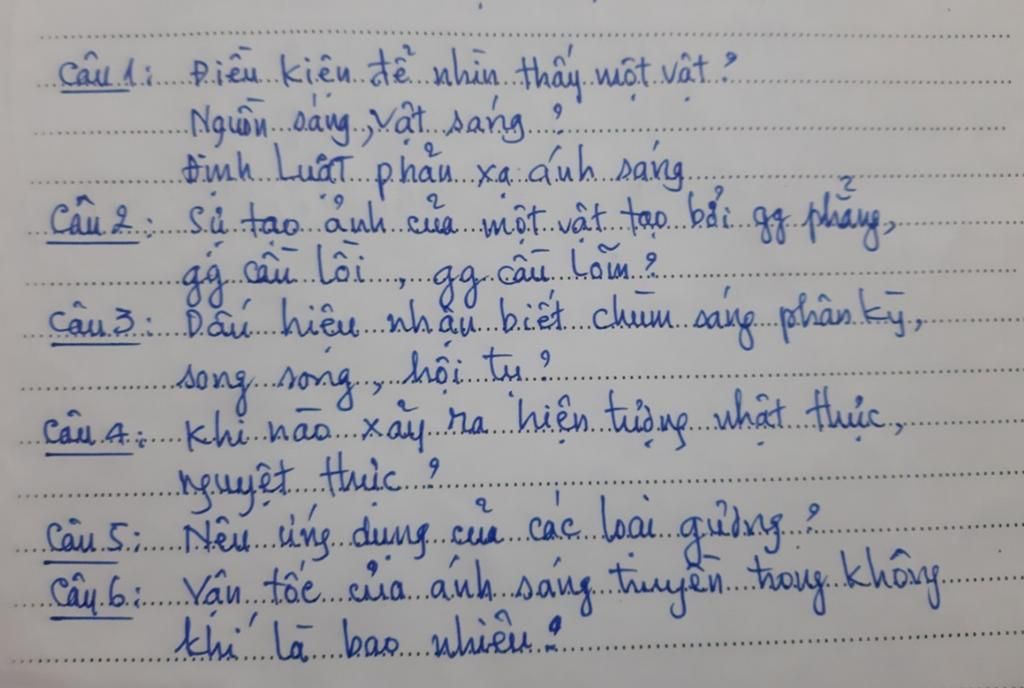 Câu 1: Điều kiện để nhìn thấy một vật?
Nguồn sáng, vật sáng?
Định Luật phản xạ ánh sáng
Câu 2: Sự tạo ảnh của một vật tạo bởi gg phẳng,
gg cầu lồi, gg cầu lõm?
Câu 3: Dấu hiệu nhận biết chùm sáng phân kỳ,
song song, hội tụ?
Câu 4: Khi nào xẩy ra hiện tượng nhật thực,
nguyệt thực?
Câu 5: Nêu ứng dụng của các loại gương?
Câu 6: Vận tốc của ánh sáng truyền trong không
khí là bao nhiêu?